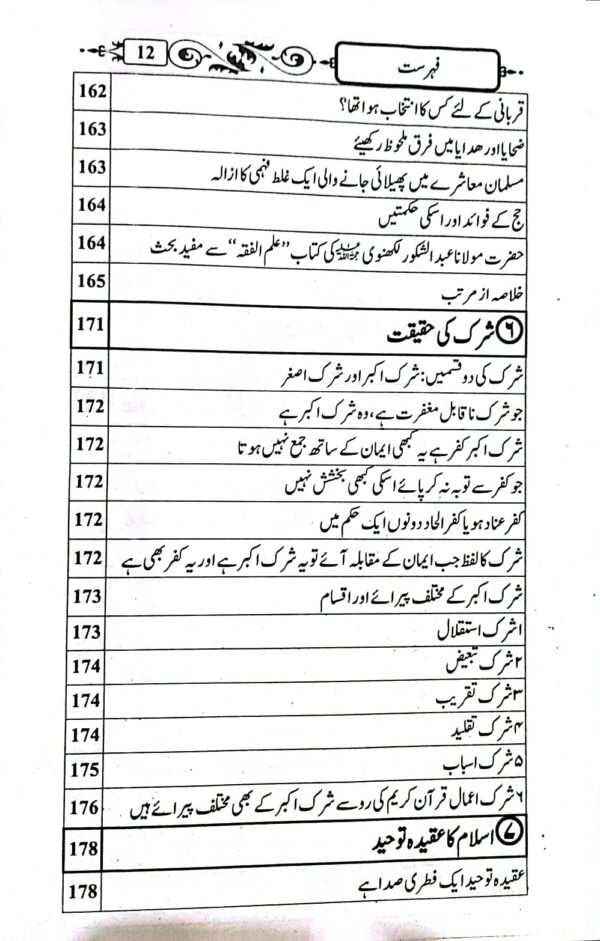 12
فہرست
قربانی کے لئے کس کا انتخاب ہوا تھا؟ 162
ضحایا اور ھدایا میں فرق ملحوظ رکھیئے 163
مسلمان معاشرے میں پھیلائی جانے والی ایک غلط فہمی کا ازالہ 163
حج کے فوائد اور اسکی حکمتیں 164
حضرت مولانا عبدالشکور لکھنوی رحمۃ اللہ علیہ کی کتاب ”علم الفقہ“ سے مفید بحث 164
خلاصہ از مرتب 165
۶ شرک کی حقیقت 171
شرک کی دو قسمیں: شرک اکبر اور شرک اصغر 171
جو شرک ناقابل مغفرت ہے، وہ شرک اکبر ہے 172
شرک اکبر کفر ہے یہ کبھی ایمان کے ساتھ جمع نہیں ہوتا 172
جو کفر سے توبہ نہ کر پائے اسکی کبھی بخشش نہیں 172
کفر عناد ہو یا کفر الحاد دونوں ایک حکم میں 172
شرک کا لفظ جب ایمان کے مقابلہ آئے تو یہ شرک اکبر ہے اور یہ کفر بھی ہے 172
شرک اکبر کے مختلف پیرائے اور اقسام 173
۱ شرک استقلال 173
۲ شرک تبعیض 174
۳ شرک تقریب 174
۴ شرک تقلید 174
۵ شرک اسباب 175
۶ شرک اعمال قرآن کریم کی رو سے شرک اکبر کے بھی مختلف پیرائے ہیں 176
۷ اسلام کا عقیدہ توحید 178
عقیدہ توحید ایک فطری صدا ہے 178